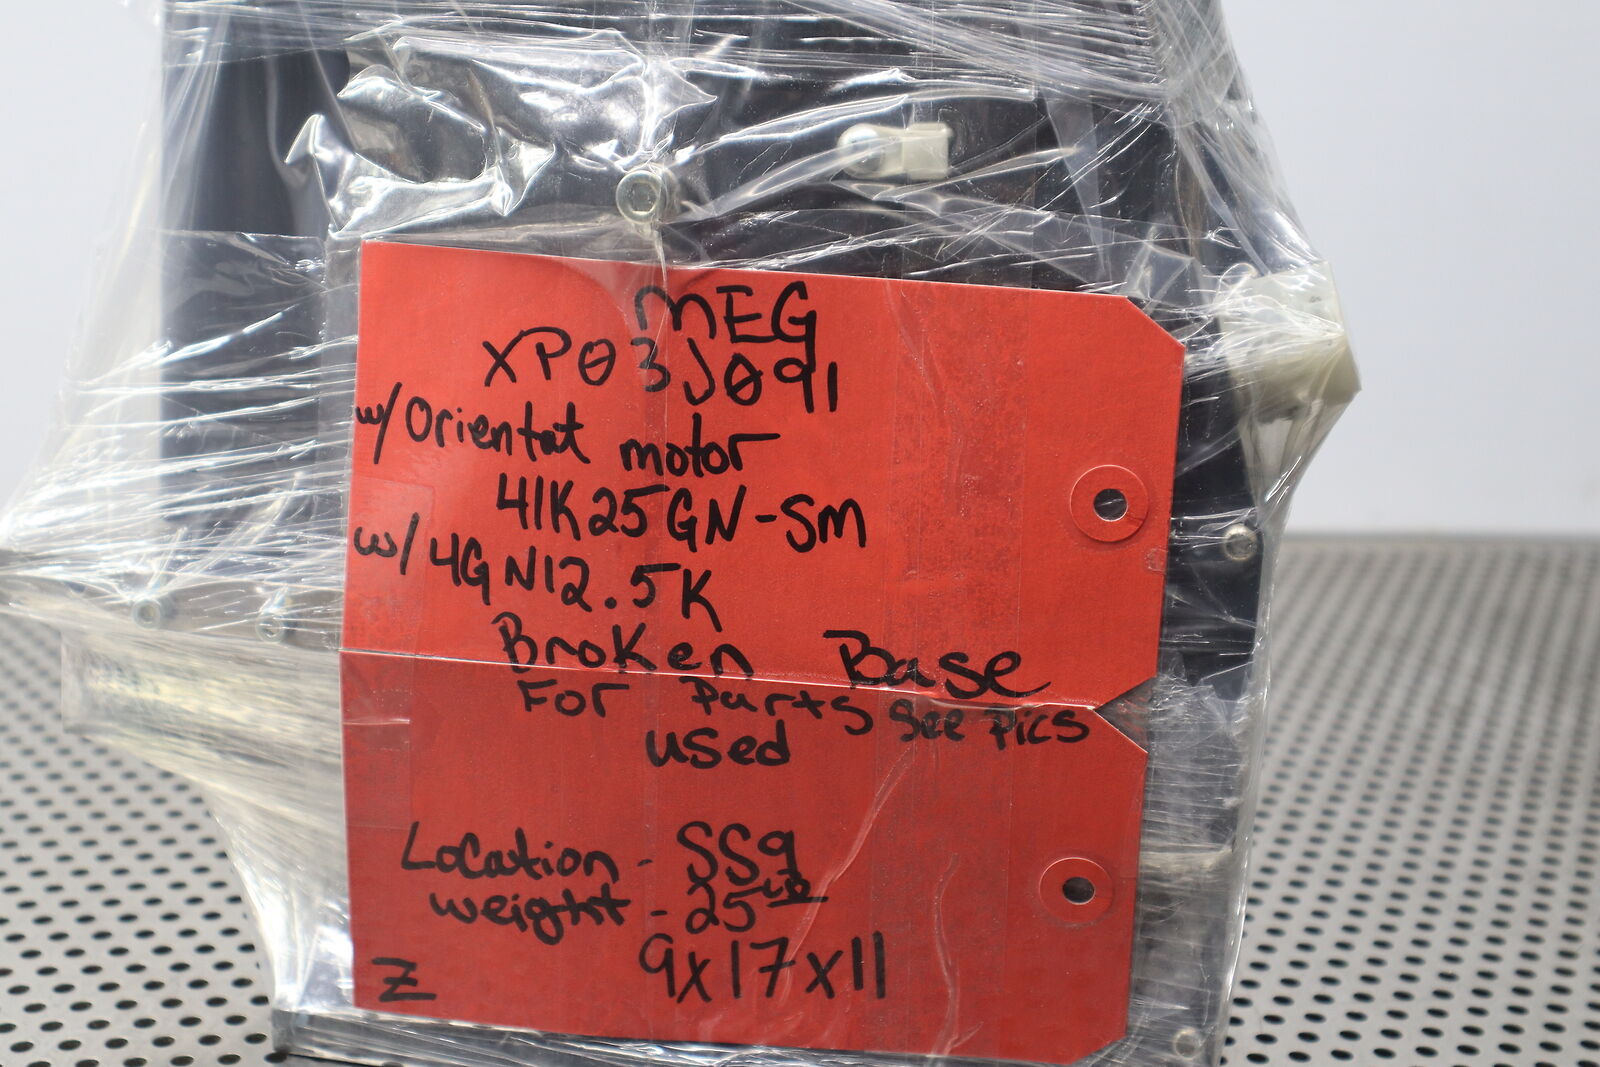 MEG
XP03J091
w/ Orientat motor
41K25GN-SM
w/ 4GN12.5K
Broken Base
For Parts see pics
used
Location - SS9
weight - 25 LB
9x17x11
Z